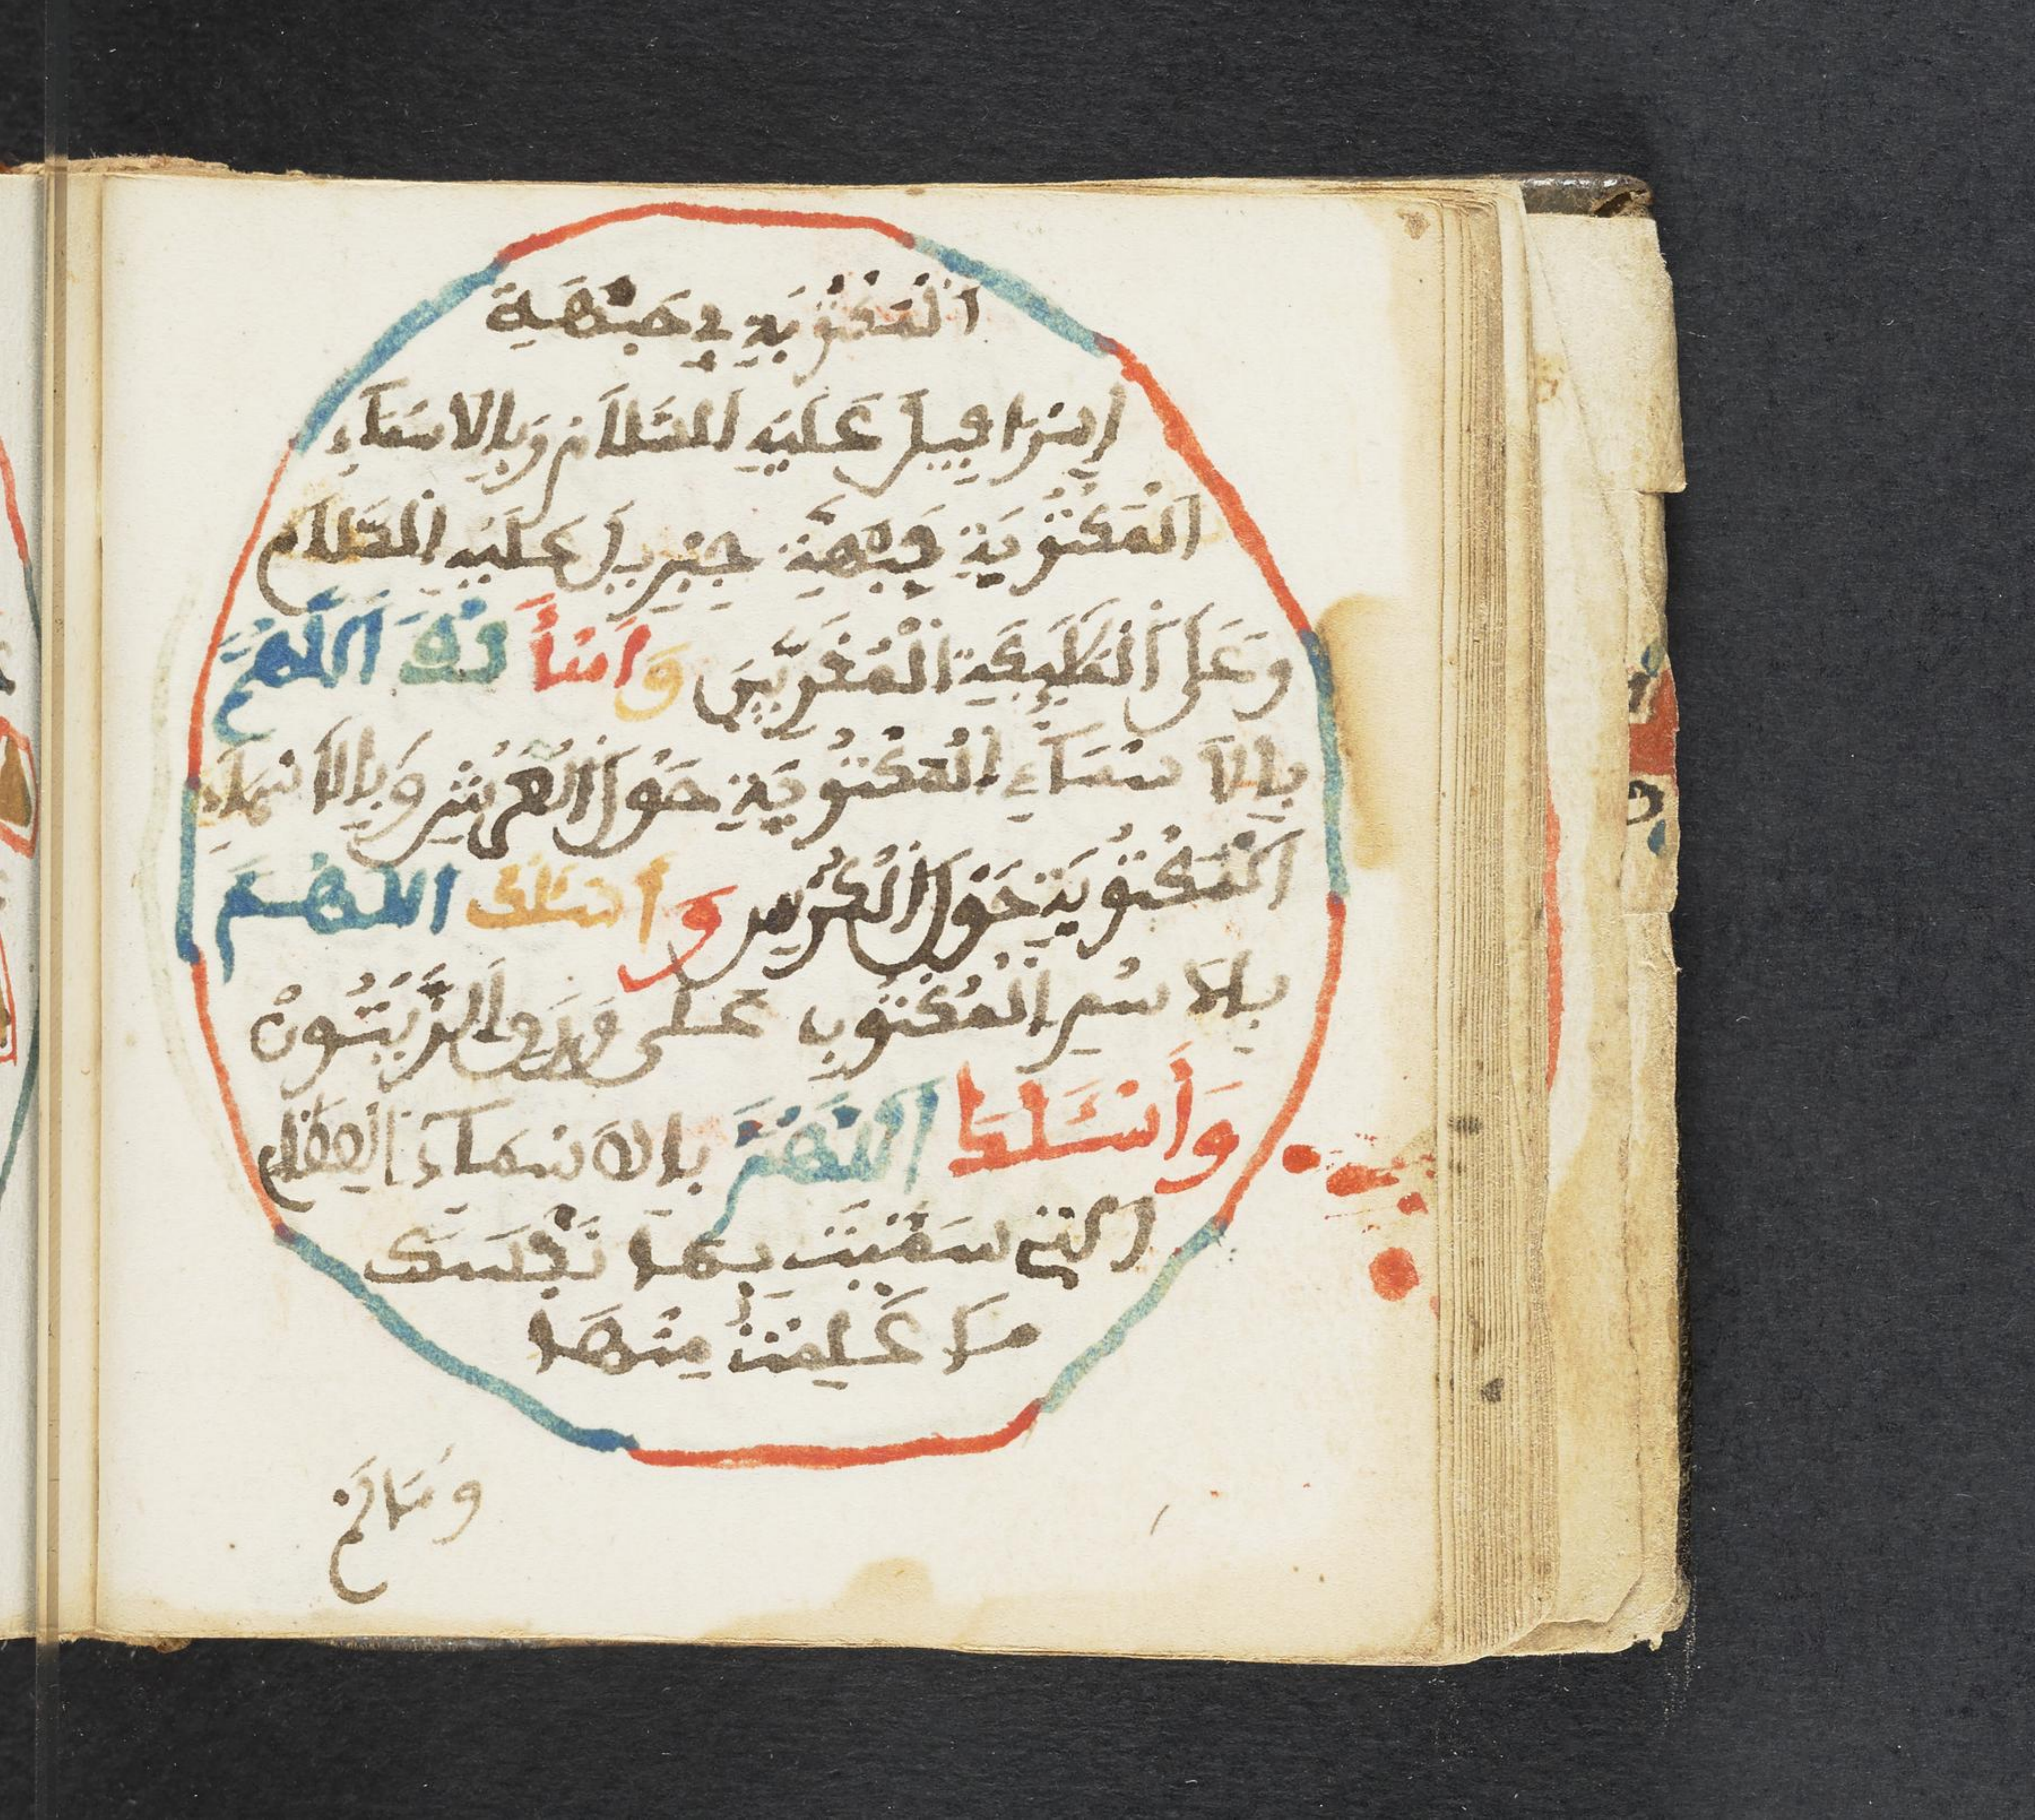 الْمَكْتُوبَةِ فِي جَبْهَةِ
إِسْرَافِيلَ عَلَيْهِ السَّلَامُ وَبِالاَسْمَاءِ
الْمَكْتُوبَةِ فِي جَبْهَةِ جِبْرِيلَ عَلَيْهِ السَّلَامُ
وَعَلَى الْمُقَرَّبِينَ وَأَسْأَلُكَ اللَّهُمَّ
بِالاَسْمَاءِ الْمَكْتُوبَةِ حَوْلَ الْعَرْشِ وَبِالاَسْمَاءِ
الْمَكْتُوبَةِ حَوْلَ الْكُرْسِي وَأَسْئَلُكَ اللَّهُمَّ
بِالاَسْمِ الْمَكْتُوبِ عَلَى وَرَقِ الزَّيْتُونِ
وَأَسْئَلُكَ اللَّهُمَّ بِالاَسْمَاءِ الْعِظَامِ
الَّتِي سَمَّيْتَ بِهَا نَفْسَكَ
مَا عَلِمْتُ مِنْهَا
وَمَا لَمْ